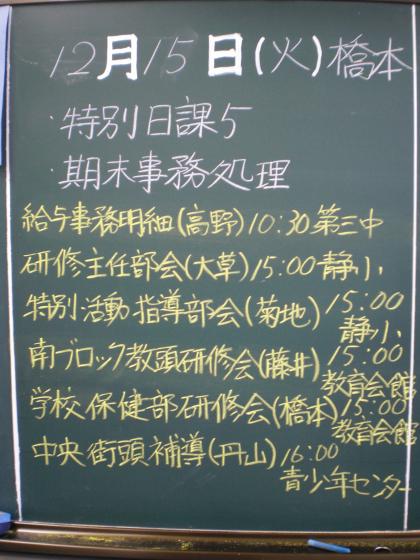 12月15日(火)橋本
・特別日課5
・期末事務処理
給与事務明細(高野)10:30第三中
研修主任部会(大草)15:00静小
特別活動指導部会(菊地)15:00
静小
南ブロック教頭研修会(藤井)15:00
教育会館
学校保健部研修会(橋本)15:00
教育会館
中央街頭補導(丹山)16:00
青少年センター